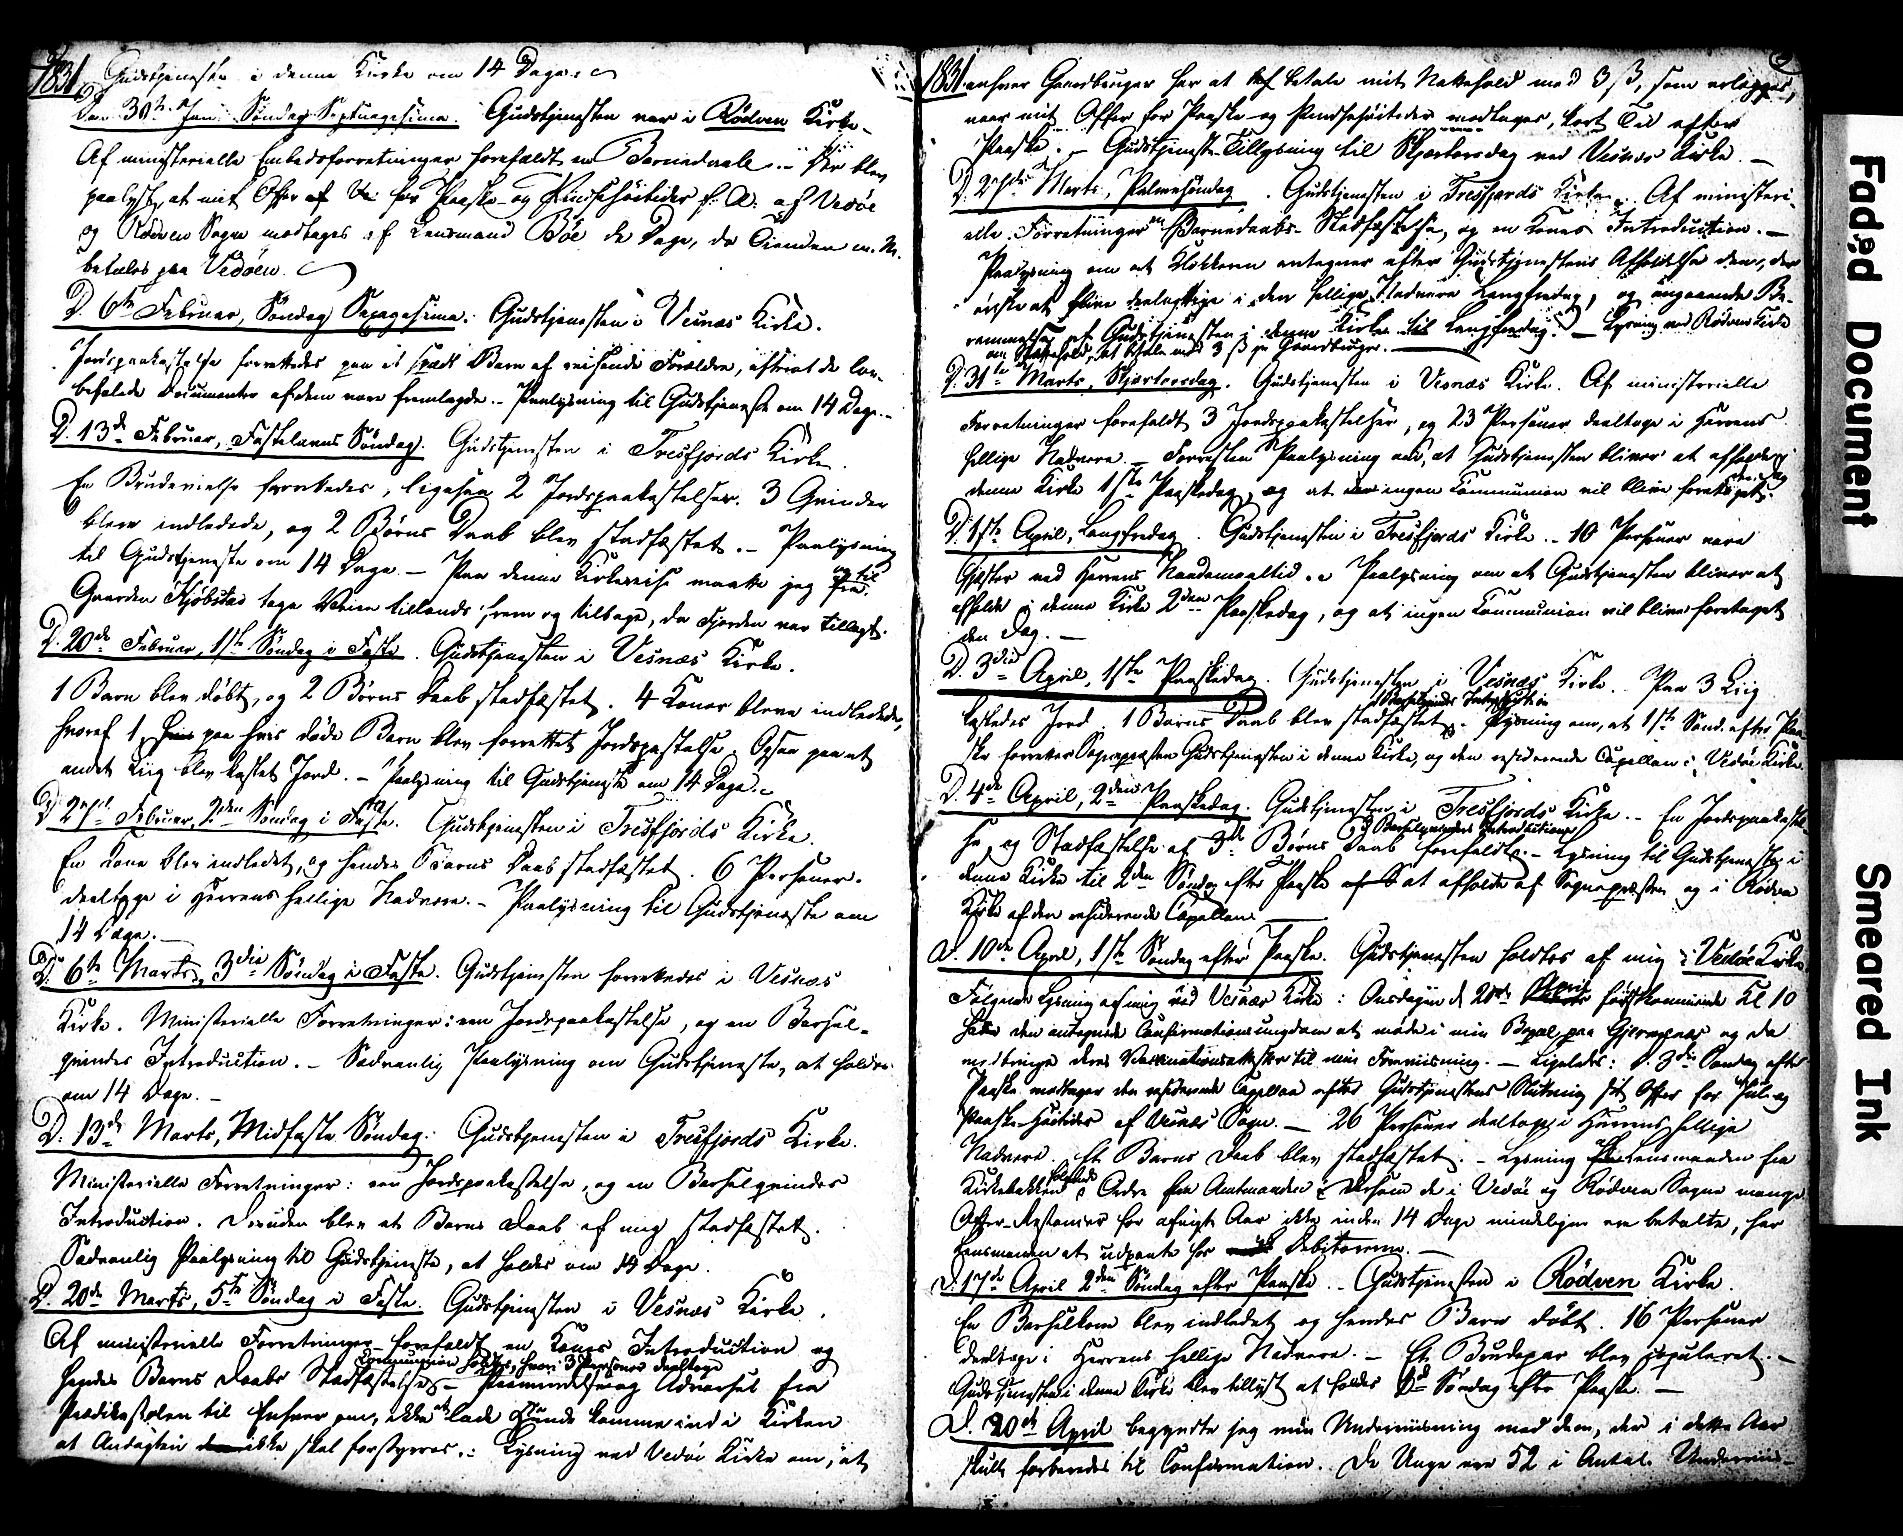 1831 Gudstjeneste i denne Kirke om 14 Dage.
Den 30te Jan. Søndag Septuagesima. Gudstjenesten var i Rødven Kirke.
Af ministerielle Embedsforretninger forefaldt en Barnedaab. Der blev
paalyst, at mit Offer for Paaske og Pindsehøitider f. A. af Vedøe
og Rødven Sogne modtages af Lensmand Bøe de Dage, da Tienden
betales paa Vedøen.
D. 6te Februar, Søndag Sexagesima. Gudstjenesten i Vesnæs Kirke.
Jordspaakastelse forrettedes paa et spædt Barn af reisende Forældre, efterat de lov-
befalede Documenter af dem vare fremlagde. - Paalysning til Gudstjeneste om 14 Dage. -
D. 13de Februar, Fastelavns Søndag. Gudstjenesten i Tresfjords Kirke.
En Brudevielse forrettedes, ligesaa 2 Jordspaakastelser. 3 Qvinder
bleve indledede, og 2 Børns Daab blev stadfæstet. - Paalysning
til Gudstjeneste om 14 Dage. - Paa denne Kirkereise maatte jeg fra og til
Gaarden Kjøbstad tage Veien tillands frem og tilbage, da Fjorden var tillagt.
D. 20de Februar, 1ste Søndag i Faste. Gudstjenesten i Vesnæs Kirke.
1 Barn blev døbt, og 2 Børns Daab stadfæstet. 4 Koner bleve indledede,
hvoraf 1, paa hvis døde Barn blev forrettet Jordspaastelse. Ogsaa paa et
andet Liig blev kastet Jord. - Paalysning til Gudstjeneste om 14 Dage.
D. 27de Februar, 2den Søndag i Faste. Gudstjenesten i Tresfjords Kirke.
En Kone blev indledet, og hendes Barns Daab stadfæstet. 6 Personer
deeltoge i Herrens hellige Nadvere. - Paalysning til Gudstjeneste om
14 Dage. -
D. 6te Marts, 3die Søndag i Faste. Gudstjenesten forrettedes i Vesnæs
Kirke. Ministerielle Forretninger: een Jordspaakastelse, og en Barsel-
qvindes Introduction. - Sædvanlig Paalysning om Gudstjeneste, at holdes
om 14 Dage. -
D. 13de Marts, Midfaste Søndag. Gudstjenesten i Tresfjords Kirke.
Ministerielle Forretninger: een Jordspaakastelse, og en Barselqvindes
Introduction. Desuden blev et Barns Daab af mig stadfæstet.
Sædvanlig Paalysning til Gudstjeneste, at holdes om 14 Dage.
D. 20de Marts, 5te Søndag i Faste. Gudstjenesten i Vesnæs Kirke.
Af ministerielle Forretninger forefaldt en Kones Introduction og
Communion holdtes, hvori 3 Personer deeltoge
hendes Barns Daabs Stadfæstelse. - Paamindelse og Advarsel fra
Prædikestolen til Enhver om, ikke at lade Hunde komme ind i Kirken
at Andagten ikke skal forstyrres. - Lysning ved Vedøe Kirke om, at
1831 enhver Gaardbruger har at betale mit Nattehold med 3 ß, som erlægges,
naar mit Offer for Paaske og Pindsehøitider modtages, kort Tid efter
Paaske. - Gudstjeneste-Tillysning til Skjærtorsdag ved Vesnæs Kirke. -
D. 27de Marts, Palmesøndag. Gudstjenesten i Tresfjords Kirke. Af ministeri-
elle Forretninger en Barnedaabs Stadfæstelse, og en Kones Introduction. -
Paalysning om at Klokkeren antegner efter Gudstjenestens Afholdelse dem, der
ønske at blive deelagtige i den hellige Nadvere Langfredag, og angaaende Be-
rammelse af Gudstjenesten i denne Kirke til Langfredag. - Lysning ved Rødven Kirke
om Nattehold, at betale med 3 ß pr Gaardbruger.
D. 31te Marts, Skjærtorsdag. Gudstjenesten i Vesnæs Kirke. Af ministerielle
Forretninger forefaldt 3 Jordspaakastelser, og 23 Personer deeltoge i Herrens
hellige Nadvere. - Forresten Paalysning om, at Gudstjenesten bliver at afholde i
denne Kirke 1ste Paaskedag, og at ingen Communion vil blive foretaget.
D. 1ste April, Langfredag. Gudstjenesten i Tresfjords Kirke. - 10 Personer vare
Gjæster ved Herrens Naademaaltid. Paalysning om at Gudstjenesten bliver at
afholde i denne Kirke 2den Paaskedag, og at ingen Communion vil blive foretaget
den Dag. -
D. 3die April, 1ste Paaskedag. Gudstjenesten i Vesnæs Kirke. Paa 3 Liig
Barselqvindes Introduction
kastedes Jord. 1 Barns Daab blev stadfæstet. Lysning om, at 1ste Sønd. efter Paa-
ske forretter Sognepræsten Gudstjenesten i denne Kirke, og den residerende Capellan i Vedøe Kirke.
D. 4de April, 2den Paaskedag. Gudstjenesten i Tresfjords Kirke. - En Jordspaakastel-
Barselqvinders Introduction
se, og Stadfæstelse af 3de Børns Daab forefaldt. - Lysning til Gudstjeneste i
denne Kirke til 2den Søndag efter Paaske at afholde af Sognepræsten og i Rødven
Kirke af den residerende Capellan.
D. 10de April, 1ste Søndag efter Paaske. Gudstjenesten holdtes af mig i Vedøe Kirke.
Følgende Lysning af mig ved Vesnæs Kirke: Onsdagen d 20de April førstkommende Kl 10
har den antegnede Confirmationsungdom at møde i min Bopæl paa Gjermundnæs og da
medbringe deres Vaccinationsattester til min Foreviisning. - Ligeledes: d. 3die Søndag efter
Paaske modtager den residerende Capellan efter Gudstjenestens Slutning sit Offer for Jule og
Paaske-Høitider af Vesnæs Sogn. - 26 Personer deeltoge i Herrens hellige
Nadvere. Et Barns Daab blev stadfæstet. - Lysning Lensmanden fra
Kirkebakken ifølge Ordre fra Amtmanden: Dersom de i Vedøe og Rødven Sogne mange
Offer-Restancer for afvigte Aar ikke inden 14 Dage mindeligen ere betalte, har
Lensmanden at udpante hos Debitorerne. -
D. 17de April 2den Søndag efter Paaske. - Gudstjenesten i Rødven Kirke.
En Barselkone blev indledet og hendes Barn døbt. 16 Personer
deeltoge i Herrens hellige Nadvere. - Et Brudepar blev copuleret. -
Gudstjeneste i denne Kirke blev tillyst at holdes Søndag efter Paaske. -
D. 20de April begyndte jeg min Underviisning med dem, der i dette Aar
skulle forberedes til Confirmation. De Unge ere 52 i Antal. Underviis-
Faded Document
Smeared Ink